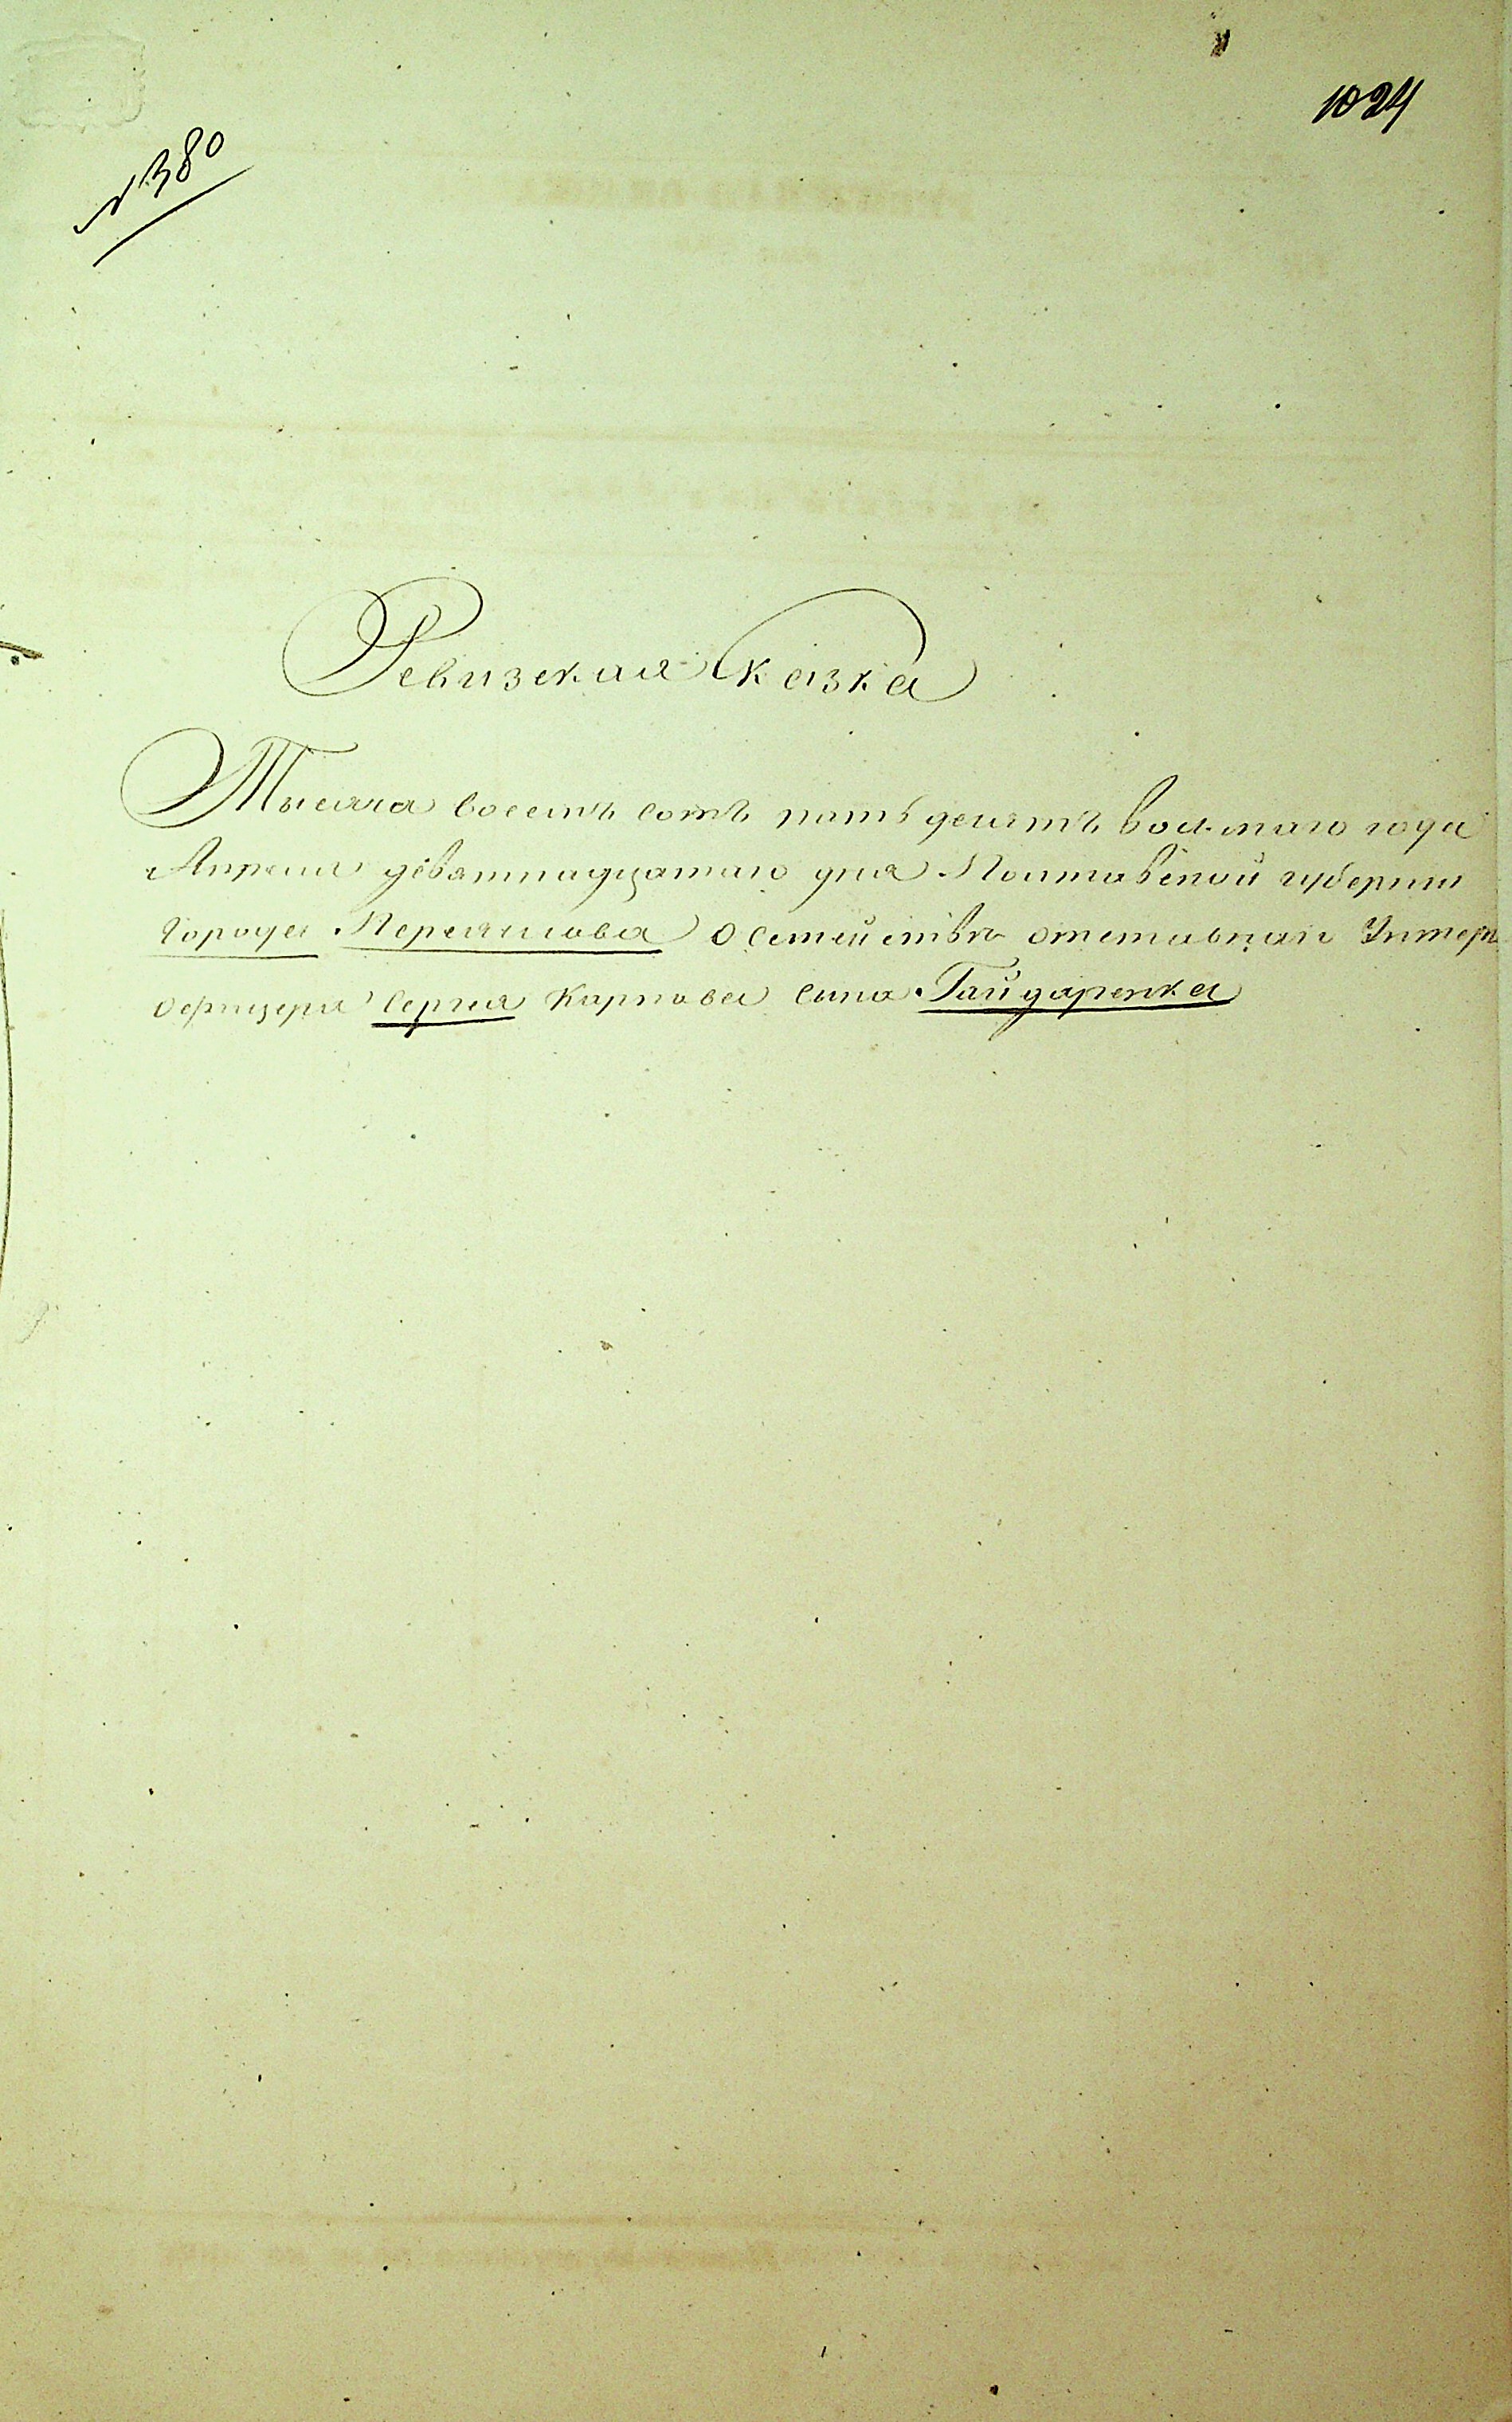 1024
№ 380
Ревизская Сказка
Тысяча восемъ сотъ пятьдесятъ восьмаго года
Апреля девятнадцатаго дня Полтавской губернии
города Переяслова о семействѣ отставнаго Унтеръ
офицера Сергея Карпова сына Гайдаренка